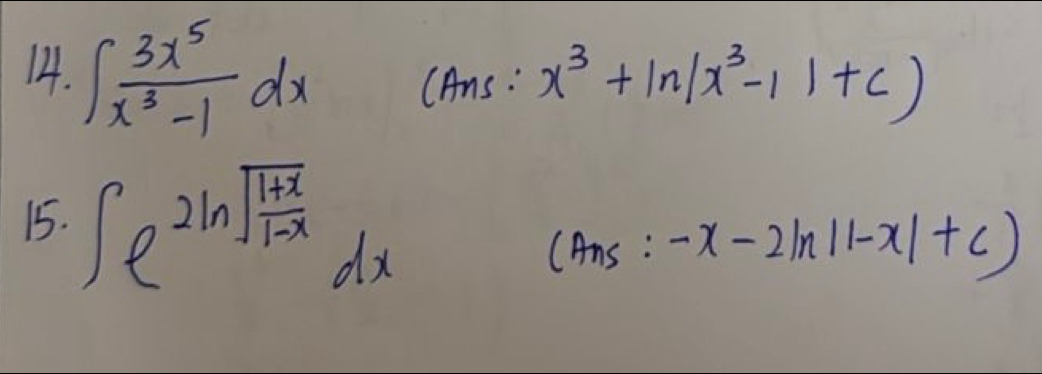 14. ∫ 3x⁵/(x³-1) dx (Ans: x³ + ln|x³-1| + c)
15. ∫ e^(2ln√((1+x)/(1-x))) dx (Ans: -x - 2ln|1-x| + c)